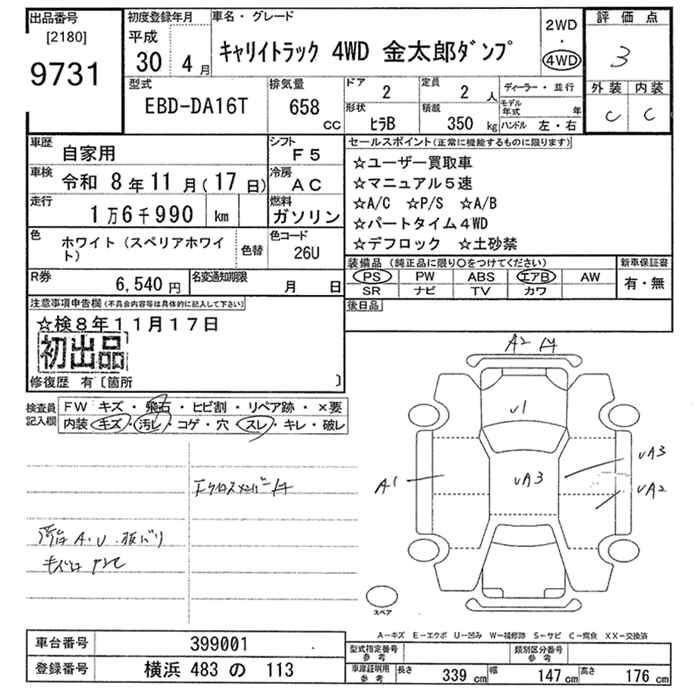 出品番号
[2180]
9731
初度登録年月
平成
30 4月
車名・グレード
キャリイトラック 4WD 金太郎ダンプ
2WD
・
4WD
評価点
3
外装 内装
C C
型式
EBD-DA16T
排気量
658
cc
ドア
2
定員
2 人
形状
ヒラB
積載
350 kg
ディーラー・並行
モデル年式 年
ハンドル 左・右
車歴
自家用
シフト
F5
車検
令和 8年11月(17日)
冷房
AC
走行
1万6千990 km
燃料
ガソリン
色
ホワイト (スペリアホワイト)
色替
色コード
26U
R券
6,540円
名変通知期限
月 日
セールスポイント(正常に機能するものに限ります)
☆ユーザー買取車
☆マニュアル5速
☆A/C ☆P/S ☆A/B
☆パートタイム4WD
☆デフロック ☆土砂禁
装備品(純正品に限り○をつけてください)
PS PW ABS エアB AW
SR ナビ TV カワ
新車保証書
有・無
後日品
注意事項申告欄(不具合内容等は具体的に記入して下さい)
☆検8年11月17日
初出品
修復歴 有〔箇所 〕
検査員記入欄
FW キズ・飛石・ヒビ割・リペア跡・×要
内装 キズ・汚レ・コゲ・穴・スレ・キレ・破レ
A2
U1
A1
UA3
UA3
UA2
スペア
A-キズ E-エクボ U-凹み W-補修跡 S-サビ C-腐食 XX-交換済
車台番号
399001
登録番号
横浜 483 の 113
型式指定番号
参考
類別区分番号
参考
車庫証明用
参考
長さ 339 cm
幅 147 cm
高さ 176 cm